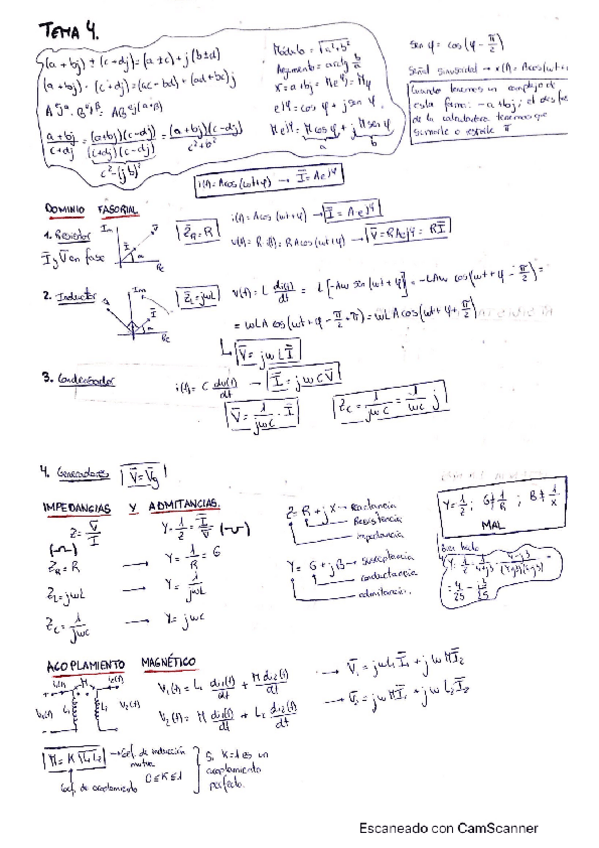 TEMA 4.
(a + bj) ± (c + dj) = (a ± c) + j(b ± d)
(a + bj) · (c + dj) = (ac - bd) + (ad + bc)j
A = (a+bj)/(c+dj) = (a+bj)(c-dj)/(c+dj)(c-dj) = (a+bj)(c-dj)/c²+b²
c² - (jb)²
Módulo = √a²+b²
Argumento = arctg b/a
e^jφ = cos φ + j sen φ
M e^jφ = M cos φ + j M sen φ
a b
Sen φ = cos(φ - π/2)
Señal sinusoidal → x(t) = A cos(ωt+
Cuando tenemos un complejo de
esta forma: -a+bj, el desfase
de la calculadora tenemos que
sumarle o restarle π
i(t) = A cos(ωt+φ) → Ī = A e^jφ
DOMINIO FASORIAL
1. Resistor
Ī y V̄ en fase
Im
V̄
Ī
Re
Z_R = R
i(t) = A cos(ωt+φ) → Ī = A e^jφ
v(t) = R·i(t) = R A cos(ωt+φ) → V̄ = R A e^jφ = R Ī
2. Inductor
Im
Re
Z_L = jωL
v(t) = L di(t)/dt = L [-Aω sen(ωt+φ)] = -LAω cos(ωt + φ - π/2) =
= ωLA cos(ωt + φ - π/2 + π) = ωLA cos(ωt + φ + π/2)
V̄ = jωL Ī
3. Condensador
i(t) = C dv(t)/dt → Ī = jωC V̄
V̄ = 1/jωC · Ī
Z_C = 1/jωC = 1/ωC j
4. Generadores V̄ = V̄g
IMPEDANCIAS Y ADMITANCIAS.
Z = V̄/Ī
Y = 1/Z = Ī/V̄
Z_R = R → Y = 1/R = G
Z_L = jωL → Y = 1/jωL
Z_C = 1/jωC → Y = jωC
Z = R + jX → Reactancia
Resistencia
impedancia
Y = G + jB → susceptancia
conductancia
admitancia.
Y = 1/Z ; G ≠ 1/R ; B ≠ 1/X
MAL
Bien hecho
= 4/25 - j3/25
ACOPLAMIENTO MAGNÉTICO
i₁(t) M i₂(t)
V₁(t) L₁ L₂ V₂(t)
V₁(t) = L₁ di₁(t)/dt + M di₂(t)/dt → V̄₁ = jωL₁Ī₁ + jωMĪ₂
V₂(t) = M di₁(t)/dt + L₂ di₂(t)/dt → V̄₂ = jωMĪ₁ + jωL₂Ī₂
M = K √L₁L₂ → Coef. de inducción
mutua
Coef. de acoplamiento 0 ≤ K ≤ 1
Si K=1 es un
acoplamiento
perfecto.
Escaneado con CamScanner